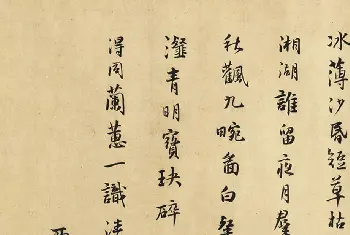 冰薄沙昏短草枯
湘湖誰留夜月羣
秋飌九畹啚白粲
瀣青明寶玦碎
得同蘭蕙一識清